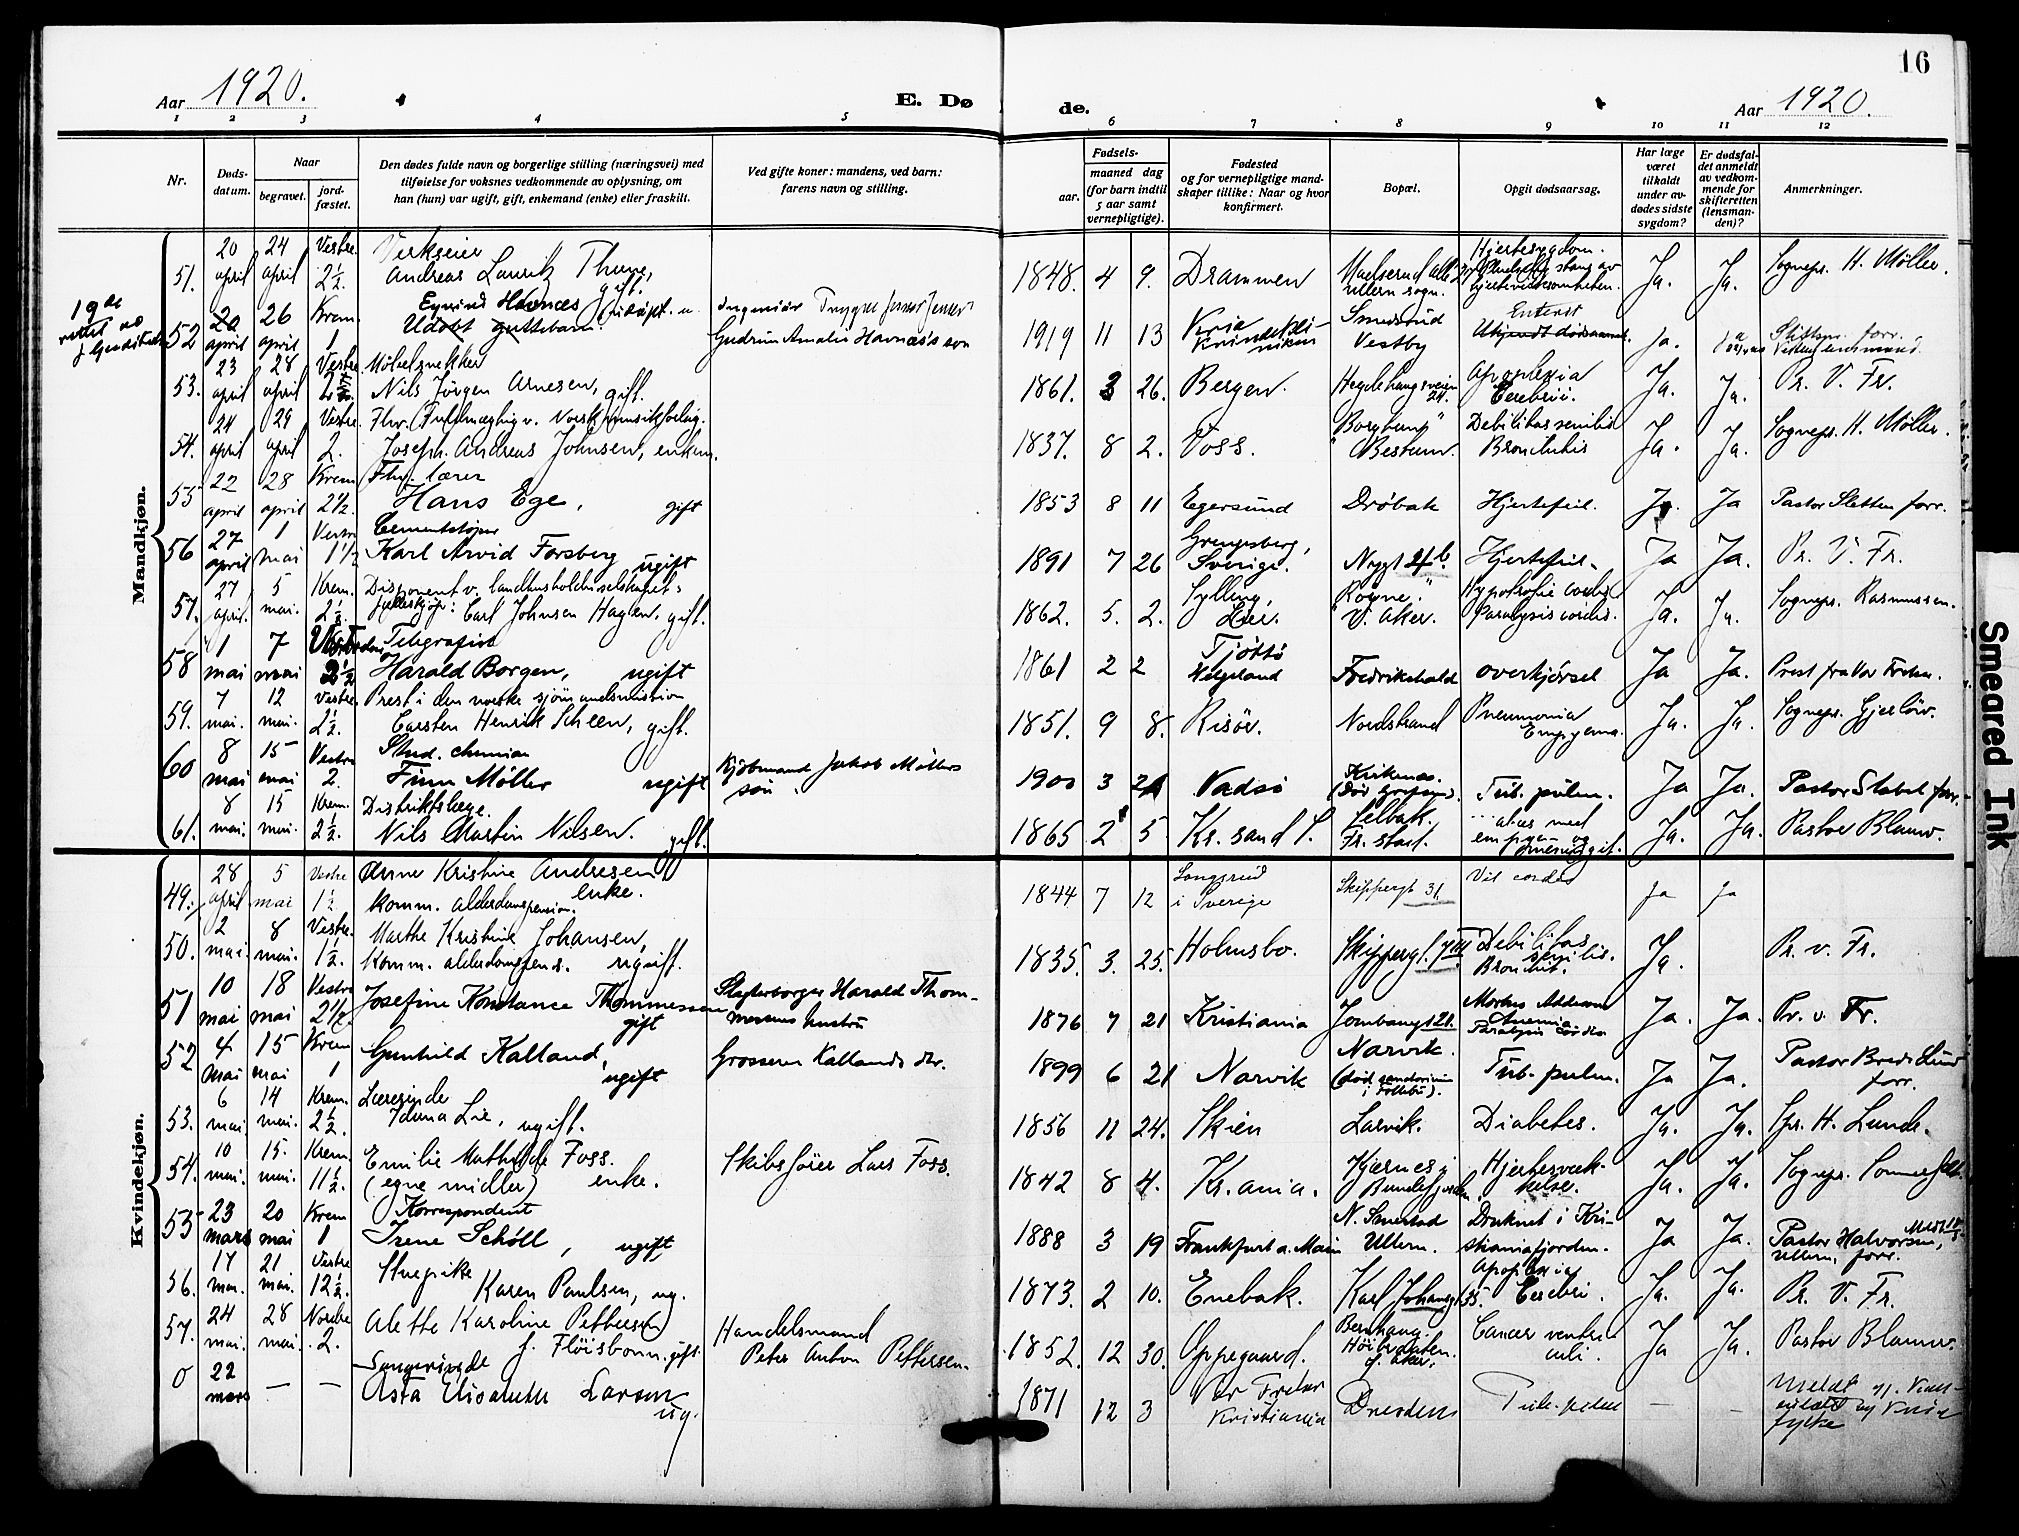 16
Aar 1920.
E. Dø
de.
Aar 1920.
1 2 3 4 5 6 7 8 9 10 11 12
Nr.
Døds-
datum.
Naar
begravet.
jord-
fæstet.
Den dødes fulde navn og borgerlige stilling (næringsvei) med
tilføielse for voksnes vedkommende av oplysning, om
han (hun) var ugift, gift, enkemand (enke) eller fraskilt.
Ved gifte koner: mandens, ved barn:
farens navn og stilling.
Fødsels-
aar.
maaned dag
(for barn indtil
5 aar samt
vernepligtige).
Fødested
og for vernepligtige mand-
skaper tillike: Naar og hvor
konfirmert.
Bopæl.
Opgit dødsaarsag.
Har læge
været
tilkaldt
under av-
dødes sidste
sygdom?
Er dødsfal-
det anmeldt
av vedkom-
mende for
skifteretten
(lensman-
den)?
Anmerkninger.
Mandkjøn.
51. 20 april 24 april Vestre 2½. Verkseier
Andreas Lauritz Thune, gift. 1848. 4 9. Drammen Ullern sogn. Hjertesygdom. Ja. Ja. Sognepr. H. Møller.
19de
52 20 april 26 april Krem. 1 Eyvind Havnæs
Udøbt guttebarn Ingeniør
Gudrun Amalie Havnæs's søn 1919 11 13 Kria
Kvindekli-
niken Smedsrud
Vestby Enterit
Ukjendt dødsaarsak Ja. Ja
53. 23 april 28 april Vestre Møbelsnekker
Nils Jørgen Arnesen, gift. 1861. 3 26. Bergen. Hegdehaugsveien 24. Apoplexia
Cerebri. Ja. Ja. Pr. V. Fr.
54. 24 april 29 april Vestre. 2. Fhv. Fuldmægtig v. Norsk musikforlag.
Joseph. Andreas Johnsen, enkem. 1837. 8 2. Voss. "Borghaug"
Bestum. Debilitas senilis
Bronchitis Ja. Ja. Sognepr. H. Møller.
55 22 april 28 april Krem 2½. Fhv. lærer
Hans Ege, gift 1853 8 11 Egersund Drøbak Hjertefeil. Ja. Ja Pastor Sletten forr.
56 27 april 1 mai Vestre 1½ Cementstøper
Karl Arvid Forsberg ugift 1891 7 26 Grengesberg,
Sverige. Nygt 21b. Hjertefeil. Ja Ja. Pr. V. Fr.
57. 27 april. 5 mai. Krem. 2½. Disponent v. landhusholdnselskapets
felleskjøp: Carl Johnsen Haglen. gift. 1862. 5. 2. Sylling,
Lier. "Rogne."
V. Aker. Hypotrofie cordis
Paralysis cordis. Ja. Ja. Sognepr. Rasmussen.
58 1 mai 7 mai Vestre 2½ Telegrafist
Harald Borgen, ugift 1861 2 2 Tjøttø
Helgeland Fredrikshald overkjørsel Ja Ja. Prest fra Vor Frelser.
59. 7 mai. 12 mai. Vestre. 2½. Prest i den norske sjømandsmission
Carsten Henrik Scheen, gift. 1851. 9 8. Risør. Nordstrand Pneumonia
Empyema. Ja. Ja. Sognepr. Gjerløw.
60 8 mai 15 mai Vestre 2. Stud. chemiae
Finn Møller ugift Kjøbmand Jakob Møllers
søn. 1900 3 21 Vadsø Kirkenes.
(Død Grefsen). Tub. pulm. Ja Ja. Pastor Stabel forr.
61. 8 mai. 15 mai. Krem. 2½. Distriktslæge
Nils Martin Nilsen. gift. 1865 2 5. Kr. sand S. Selbak.
Fr. stad. Ja. Ja. Pastor Blauw.
Kvindekjøn.
49. 28 april 5 mai Vestre 1½ Anne Kristine Andresen
komm. alderdomspension. enke. 1844 7 12 i Sverige Skippergt 31. Vit. cordis Ja Ja
50. 2 mai. 8 mai. Vestre. 1½. Marthe Kristine Johansen,
Komm. alderdomspens. ugift. 1835. 3. 25. Holmsbo. Skippergt. 7III. Debilitas
senilis.
Bronchit. Ja. Pr. v. Fr.
51 10 mai 18 mai Vestre 2½. Josefine Konstance Thommessen
gift Slagterborger Harald Thom-
mesens hustru 1876 7 21 Kristiania Tombaugt 21. Morbus Addisoni
Anemia
Paralysis cordis Ja. Ja. Pr. v. Fr.
52 4 mai 15 mai Krem 1 Gunhild Kalland,
ugift Grosserer Kallands dtr. 1899 6 21 Narvik Narvik.
(død sanatorium
i Follebu). Tub. pulm. Ja Ja. Pastor Brede Lund
forr.
53. 6 mai. 14 mai. Krem. 2½. Lærerinde
Iduna Lie, ugift. 1856 11 24. Skien Larvik. Diabetes. Ja. Ja. Spr. H. Lunde.
54. 10 mai. 15. mai. Krem. 11½. Emilie Mathilde Foss.
(egne midler) enke. Skibsfører Lars Foss. 1842 8 4. Kr.ania. Kjærnes i
Bundefjorden Hjertesvek-
kelse. Ja. Ja. Sognepr. Sommerfeldt.
55 23 mars 20 mai Krem 1 Korrespondent
Irene Schöll, ugift 1888 3 19 Frankfurt a. Main N. Smestad
Ullern. Druknet i Kri-
stianiafjorden. Ja Ja. Pastor Halvorsen,
Ullern, forr.
56. 17 mai. 21 mai. Vestre 12½. Stuepike
Karen Paulsen, ug. 1873. 2 10. Enebak. Karl Johansgt 35. Apoplexia
Cerebri. Ja. Ja. Pr. V. Fr.
57. 24 mai. 28 mai. Nordre 2. Alette Karoline Pettersen
f. Fløisbonn. gift. Handelsmand
Peter Anton Pettersen. 1852. 12 30. Oppegaard. Bernhaug.
Høibraaten.
Ø. Aker. Cancer ventri-
culi. Ja Ja. Pastor Blauw.
0 22 mars — — Sangerinde
Asta Elisabeth Larsen
ug. 1871 12 3 Vor Frelser
Kristiania Dresden Tub. pulm — — Meldt
fylke
Smeared Ink